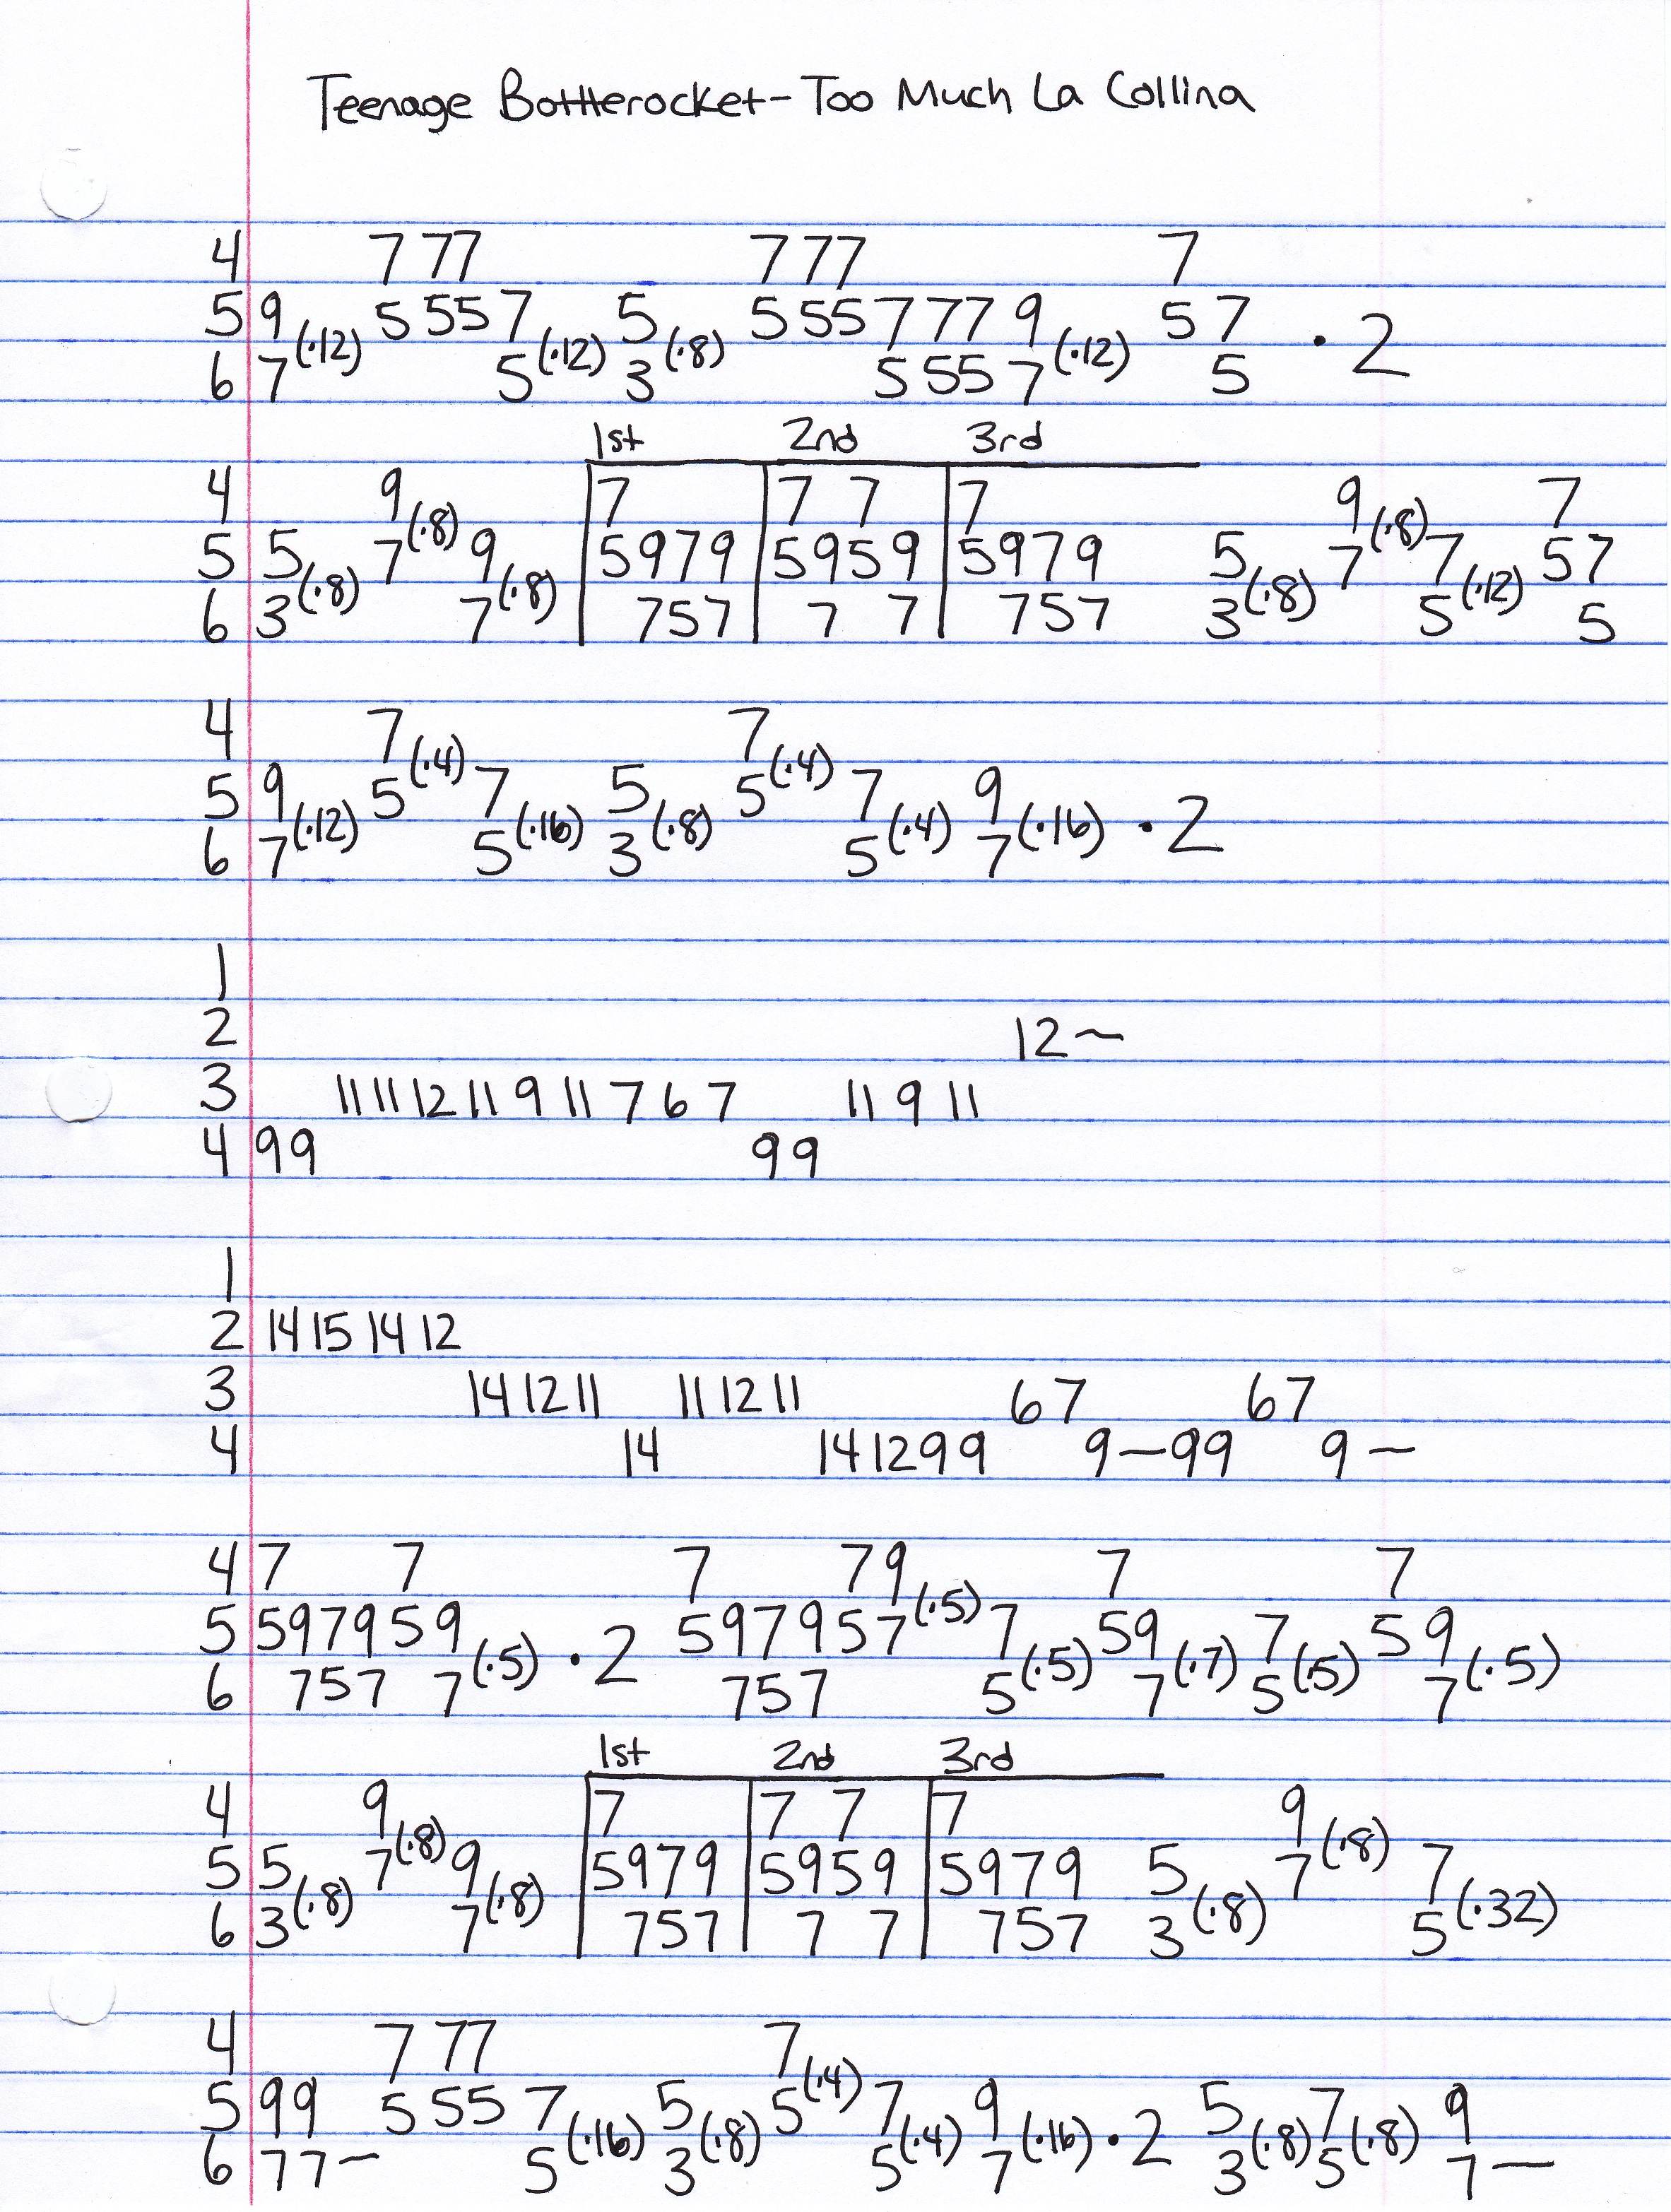 Teenage Bottlerocket - Too Much La Collina
4 7 77 777 7
5 9 5 557 5 555777 9 5 7
6 7(·12) 5(·12) 3(·8) 5557(·12) 5 · 2
1st 2nd 3rd
4 9 7 7 7 7 9 7
5 5 7(·8) 9 5979 5959 5979 5 7(·8) 7 57
6 3(·8) 7(·8) 757 7 7 757 3(·8) 5(·12) 5
4 7 7
5 9 5(·4) 7 5 5(·4) 7 9
6 7(·12) 5(·16) 3(·8) 5(·4) 7(·16) · 2
1
2 12~
3 11 11 12 11 9 11 7 6 7 11 9 11
4 99 99
1
2 14 15 14 12
3 14 12 11 11 12 11 67 67
4 14 14 12 99 9—99 9—
4 7 7 7 79 7 7
5 597959 597957(·5) 7 59 7 59
6 757 7(·5) · 2 757 5(·5) 7(·7) 5(·5) 7(·5)
1st 2nd 3rd
4 9 7 7 7 7 9
5 5 7(·8) 9 5979 5959 5979 5 7(·8) 7
6 3(·8) 7(·8) 757 7 7 757 3(·8) 5(·32)
4 7 77 7
5 99 5 55 7 5 5(·4) 7 9 5 7 9
6 77— 5(·16) 3(·8) 5(·4) 7(·16) · 2 3(·8) 5(·8) 7—